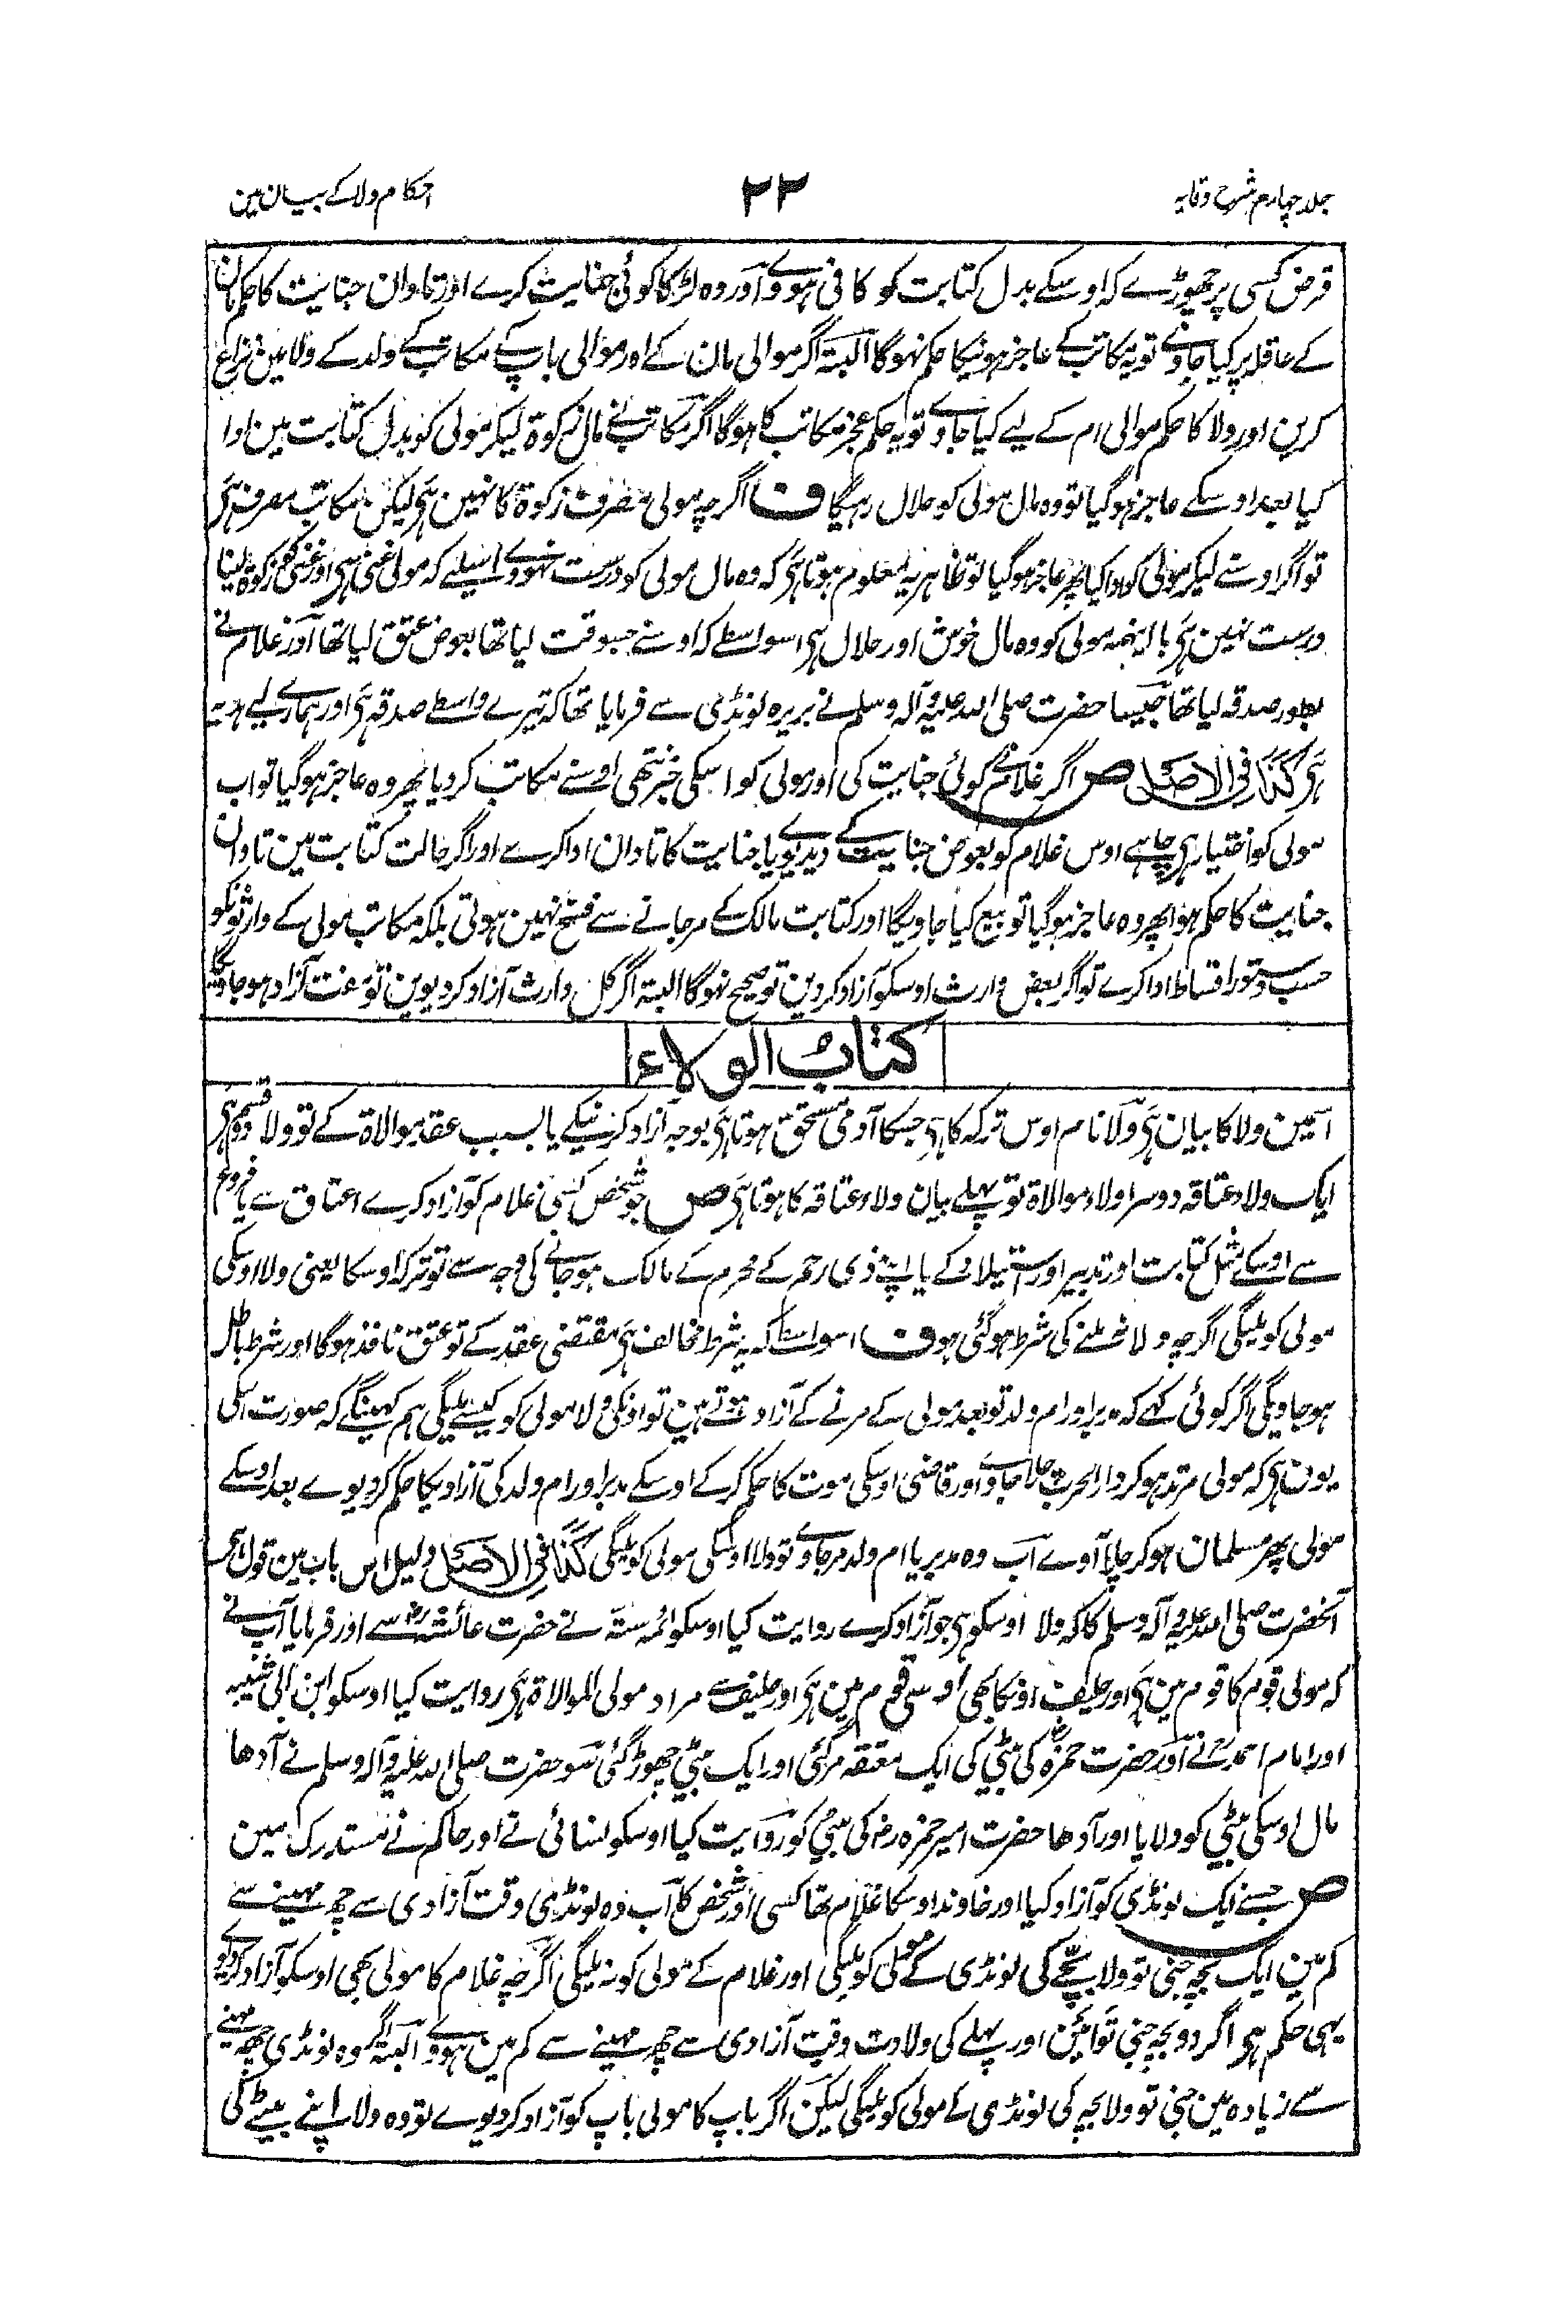 جلد چہارم شرح وقایہ
۲۲
احکام ولا کے بیان مین
قرض کسی پر چھوڑے کہ اوسکے بدل کتابت کو کافی ہووے اور وہ لڑکا کوئی جنایت کرے اور تاوان جنایت کا حکم مان
کے عاقلہ پر کیا جاوے تو یہ مکاتب کے عاجز ہونیکا حکم نہوگا البتہ اگر موالی مان کے اور موالی باپ کے مکاتب کے ولد کے ولا مین نزاع
کرین اور ولا کا حکم موالی ام کے لیے کیا جاوے تو یہ حکم عجز مکاتب کا ہوگا اگر مکاتب نے مال زکوۃ لیکر مولی کو بدل کتابت مین ادا
کیا بعد اوسکے عاجز ہوگیا تو وہ مال مولی کو حلال رہیگا ف اگرچہ مولی مصرف زکوۃ کا نہین ہی لیکن مکاتب مصرف ہی
تو اگر اوسنے لیکر مولی کو ادا کیا پھر عاجز ہوگیا تو ظاہر یہ معلوم ہوتا ہی کہ وہ مال مولی کو درست نہووے اسلیے کہ مولی غنی ہی اور غنی کو زکوۃ لینا
درست نہین ہی با اینہمہ مولی کو وہ مال خوش اور حلال ہی اسواسطے کہ اوسنے جسوقت لیا تھا بعوض عتق لیا تھا اور غلام نے
بطور صدقہ لیا تھا جیسا حضرت صلی اللہ علیہ وآلہ وسلم نے بریرہ لونڈی سے فرمایا تھا کہ تیرے واسطے صدقہ ہی اور ہمارے لیے ہدیہ
ہی کذا فی الاصل ص اگر غلام نے کوئی جنایت کی اور مولی کو اسکی خبر نتھی اوسنے مکاتب کردیا پھر وہ عاجز ہوگیا تو اب
مولی کو اختیار ہی چاہے اوس غلام کو بعوض جنایت کے دیدیوے یا جنایت کا تاوان ادا کرے اور اگر حالت کتابت مین تاوان
جنایت کا حکم ہوا پھر وہ عاجز ہوگیا تو بیع کیا جاویگا اور کتابت مالک کے مرجانے سے فسخ نہین ہوتی بلکہ مکاتب مولی کے وارثونکو
حسب دستور اقساط ادا کرے تو اگر بعض وارث اوسکو آزاد کردین تو صحیح نہوگا البتہ اگر کل وارث آزاد کردیوین تو مفت آزاد ہوجاویگا
کتاب الولاء
اسمین ولا کا بیان ہی ولا نام اوس ترکہ کا ہی جسکا آدمی مستحق ہوتا ہی بوجہ آزاد کرنیکے یا بسبب عقد موالاۃ کے تو ولا دو قسم ہی
ایک ولاء عتاقہ دوسرا ولاء موالاۃ تو پہلے بیان ولاء عتاقہ کا ہوتا ہی ص جو شخص کسی غلام کو آزاد کرے اعتاق سے یا فروع
سے اوسکے مثل کتابت اور تدبیر اور استیلاد کے یا اپنے ذی رحم کے محرم کے مالک ہوجانے کی وجہ سے تو ترکہ اوسکا یعنی ولا اوسکی
مولی کو ملیگی اگرچہ ولا نہ ملنے کی شرط ہوگئی ہو ف اسواسطے کہ یہ شرط مخالف ہی مقتضی عقد کے تو عتق نافذ ہوگا اور شرط باطل
ہوجاویگی اگر کوئی کہے کہ مدبر اور ام ولد تو بعد مولی کے مرنے کے آزاد ہوتے ہین تو اونکی ولا مولی کو کیسے ملیگی ہم کہینگے کہ صورت اسکی
یون ہی کہ مولی مرتد ہوکر دارالحرب چلا جاوے اور قاضی اوسکی موت کا حکم کرکے اوسکے مدبر اور ام ولد کی آزادیکا حکم کردیوے بعد اوسکے
مولی پھر مسلمان ہوکر چلا آوے اب وہ مدبر یا ام ولد مرجاوے تو ولا اوسکی مولی کو ملیگی کذا فی الاصل دلیل اس باب مین قول ہی
آنحضرت صلی اللہ علیہ وآلہ وسلم کا کہ ولا اوسکو ہی جو آزاد کرے روایت کیا اوسکو ائمہ ستہ نے حضرت عائشہ رض سے اور فرمایا آپ نے
کہ مولی قوم کا قوم مین ہی اور حلیف اونکا بھی اوسی قوم مین ہی اور حلیف سے مراد مولی الموالاۃ ہی روایت کیا اوسکو ابن ابی شیبہ
اور امام احمد نے اور حضرت حمزہ کی بیٹی کی ایک معتقہ مرگئی اور ایک بیٹی چھوڑ گئی سو حضرت صلی اللہ علیہ وآلہ وسلم نے آدھا
مال اوسکی بیٹی کو دلایا اور آدھا حضرت امیر حمزہ رض کی بیٹی کو روایت کیا اوسکو نسائی نے اور حاکم نے مستدرک مین
ص جسنے ایک لونڈی کو آزاد کیا اور خاوند اوسکا غلام تھا کسی اور شخص کا اب وہ لونڈی وقت آزادی سے چھ مہینے سے
کم مین ایک بچہ جنی تو ولا بچے کی لونڈی کے مولی کو ملیگی اور غلام کے مولی کو نہ ملیگی اگرچہ غلام کا مولی بھی اوسکو آزاد کردیوے
یہی حکم ہی اگر دو بچہ جنی توأمین اور پہلے کی ولادت وقت آزادی سے چھ مہینے سے کم مین ہووے البتہ اگر وہ لونڈی چھ مہینے
سے زیادہ مین جنی تو ولا بچہ کی لونڈی کے مولی کو ملیگی لیکن اگر باپ کا مولی باپ کو آزاد کردیوے تو وہ ولا اپنے بیٹے کی